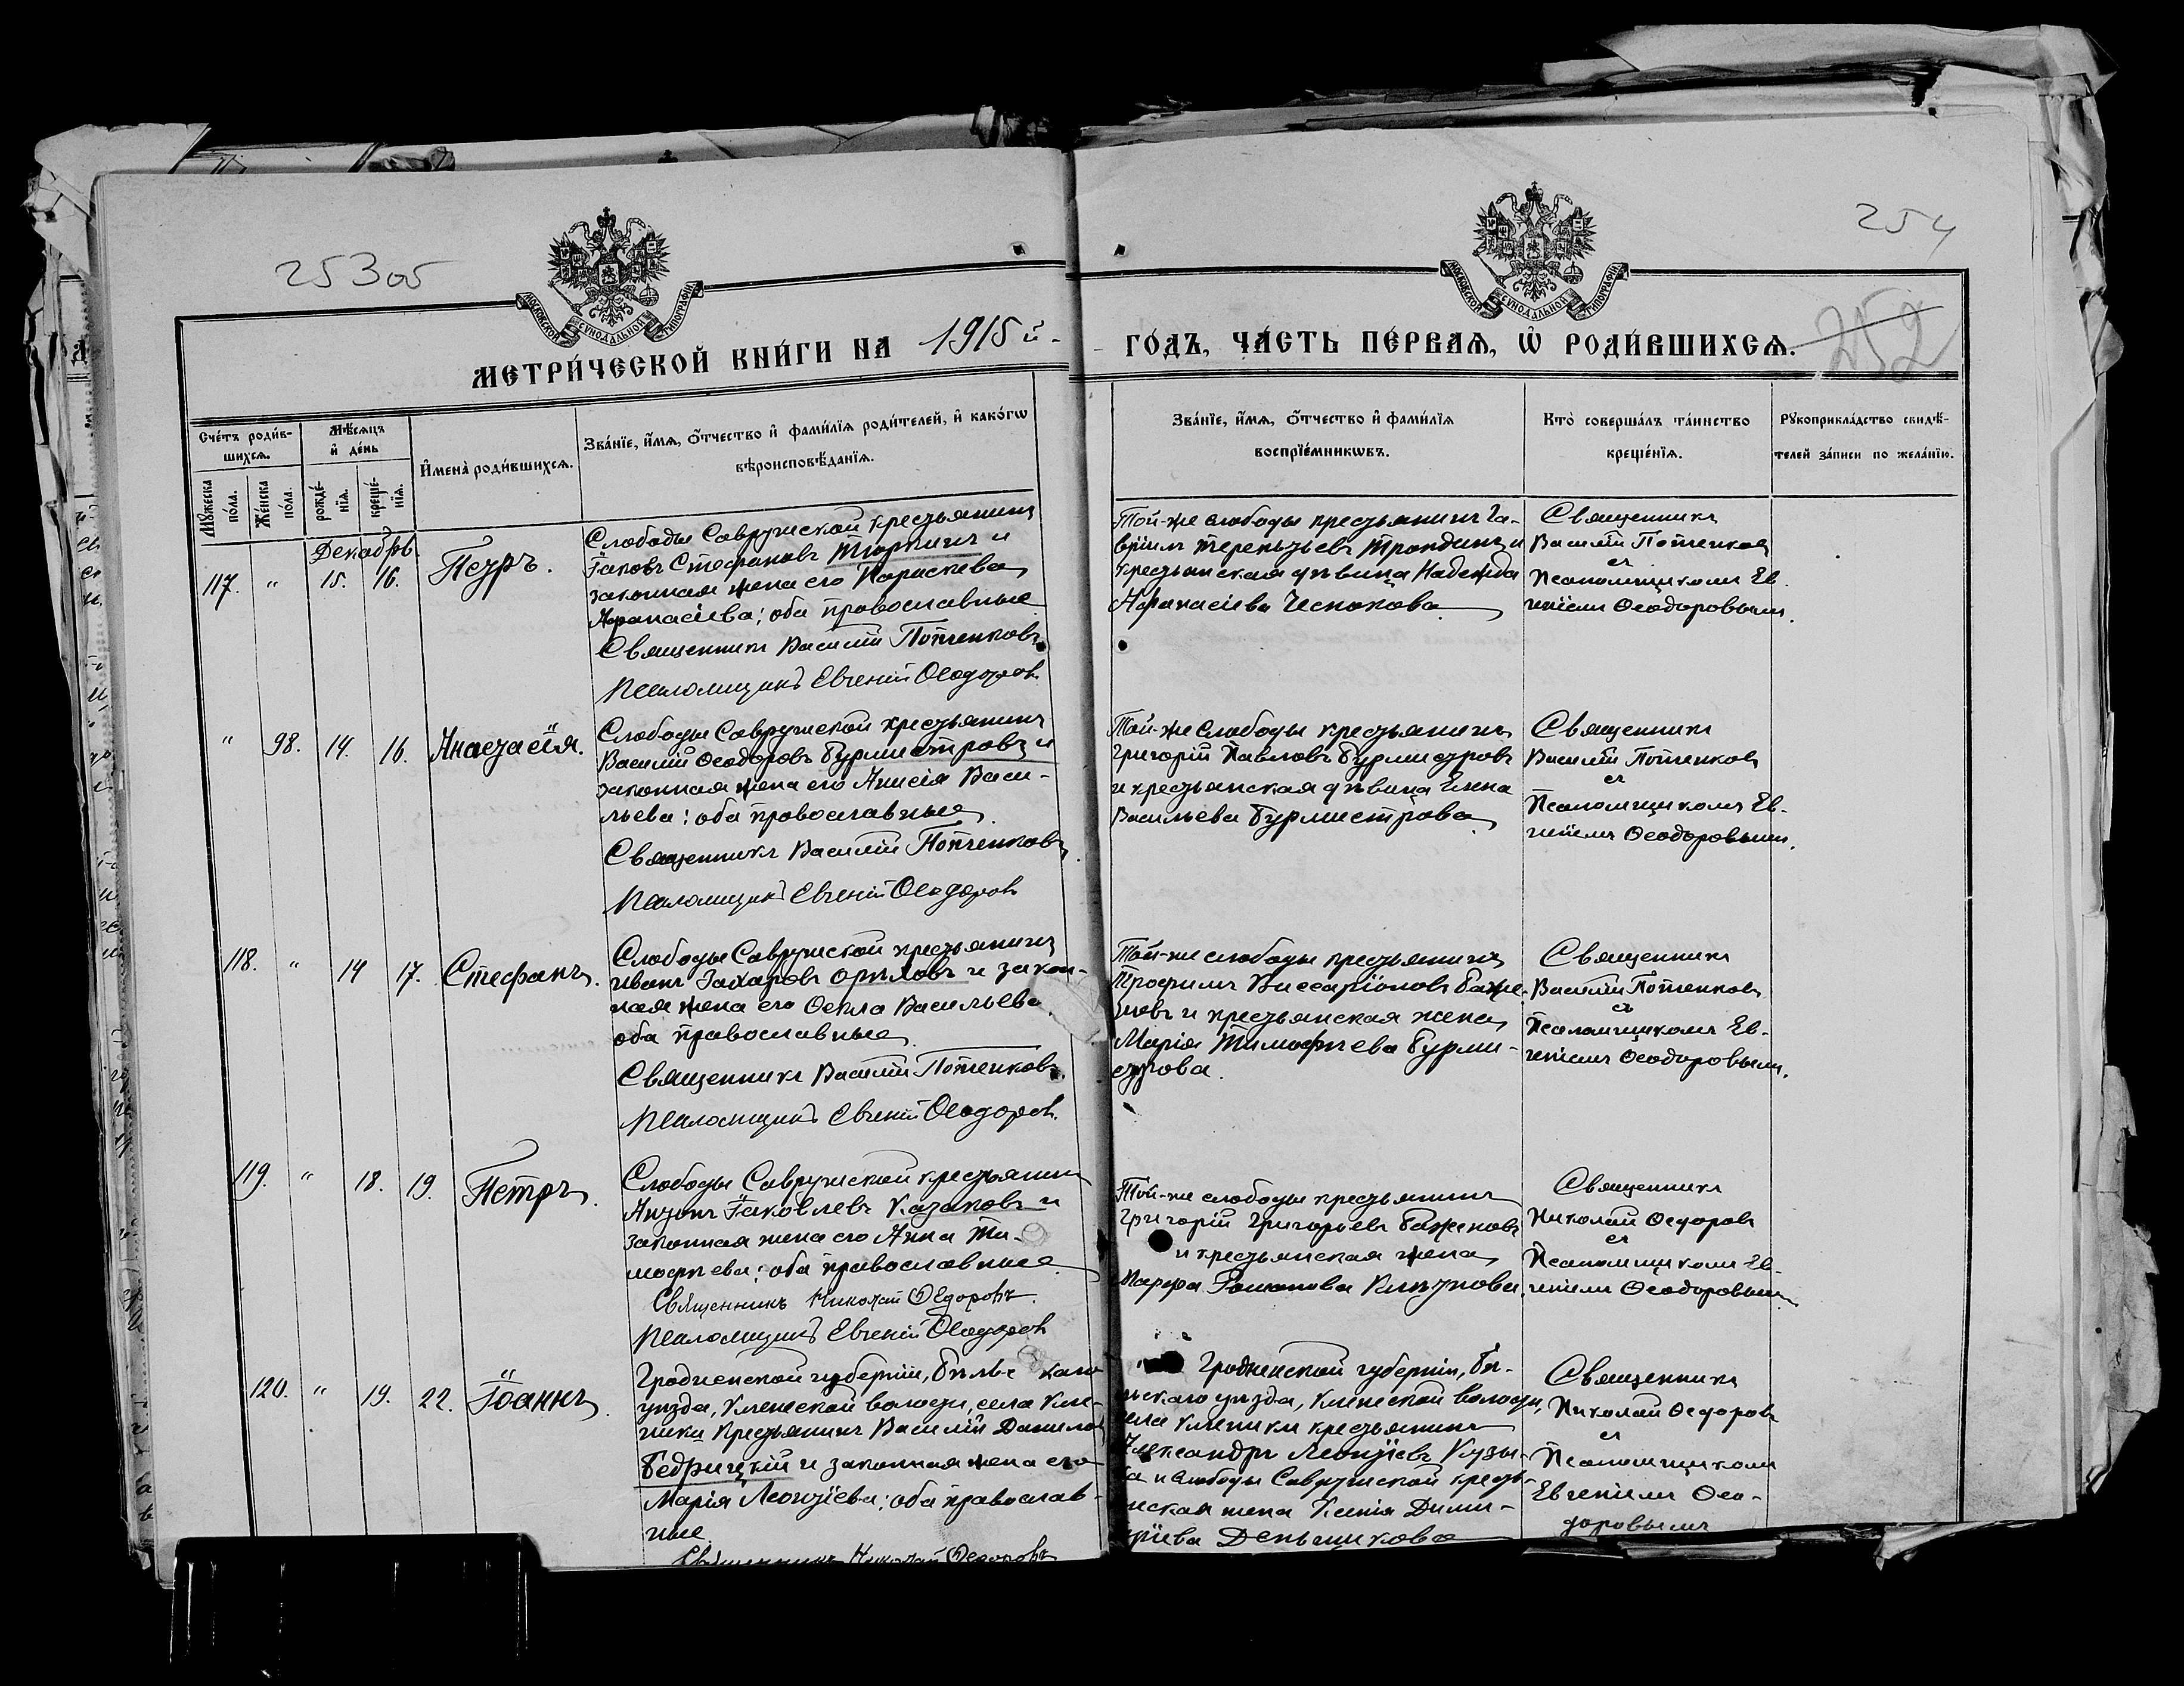 253 об
254
252
МОСКОВСКОЙ СѴНОДАЛЬНОЙ ТИПОГРАФІИ
МОСКОВСКОЙ СѴНОДАЛЬНОЙ ТИПОГРАФІИ
МЕТРИ́ЧЕСКОЙ КНИ́ГИ НА 1915 й
ГО́ДЪ, ЧА́СТЬ ПЕ́РВАЯ, Ѡ҆ РОДИ́ВШИХСЯ.
Сче́тъ роди́вшихся.
Мꙋ́жеска по́ла.
Же́нска по́ла.
Мѣ́сяцъ и҆ де́нь
рожде́нїя.
креще́нїя.
И҆мена̀ роди́вшихся.
Зва́нїе, и҆́мя, ѻ҆́тчество и҆ фами́лїя роди́телей, и҆ како́гѡ
вѣроисповѣ́данїя.
Зва́нїе, и҆́мя, ѻ҆́тчество и҆ фами́лїя
воспрїе́мникѡвъ.
Кто̀ соверша́лъ та́инство
креще́нїя.
Рꙋкоприкла́дство свидѣ́-
телей за́писи по жела́нїю.
Декабрь
117. " 15. 16. Петръ.
Слободы Савружской крестьянинъ
Іаковъ Стефановъ Тюркинъ и
законная жена его Параскева
Афанасіева; оба православные
Священникъ Василій Потченковъ
Псаломщикъ Евгеній Ѳеодоровъ
Той-же слободы крестьянинъ Га-
вріилъ Терентьевъ Трондинъ и
крестьянская дѣвица Надежда
Афанасіева Чеснокова
Священникъ
Василій Потченковъ
съ
Псаломщикомъ Ев-
геніемъ Ѳеодоровымъ.
" 98. 14. 16. Анастасія.
Слободы Савружской крестьянинъ
Василій Ѳеодоровъ Бурмистровъ и
законная жена его Анисія Васи-
льева; оба православные
Священникъ Василій Потченковъ
Псаломщикъ Евгеній Ѳеодоровъ
Той-же Слободы крестьянинъ
Григорій Павловъ Бурмистровъ
и крестьянская дѣвица Елена
Васильева Бурмистрова
Священникъ
Василій Потченковъ
съ
Псаломщикомъ Ев-
геніемъ Ѳеодоровымъ.
118. " 14 17. Стефанъ.
Слободы Савружской крестьянинъ
Иванъ Захаровъ Орѣловъ и закон-
ная жена его Ѳекла Васильева
оба православные
Священникъ Василій Потченковъ
Псаломщикъ Евгеній Ѳеодоровъ.
Той-же слободы крестьянинъ
Трофимъ Виссаріоновъ Баже-
новъ и крестьянская жена
Марія Тимофѣева Бурми-
строва.
Священникъ
Василій Потченковъ
съ
Псаломщикомъ Ев-
геніемъ Ѳеодоровымъ.
119. " 18. 19. Петръ.
Слободы Савружской крестьянинъ
Антонъ Іаковлевъ Казаковъ и
законная жена его Анна Ти-
мофѣева; оба православные
Священникъ Николай Ѳедоровъ.
Псаломщикъ Евгеній Ѳеодоровъ
Той-же слободы крестьянинъ
Григорій Григорьевъ Баженовъ
и крестьянская жена
Марфа Романова
Священникъ
Николай Ѳедоровъ
съ
Псаломщикомъ Ев-
геніемъ Ѳеодоровымъ
120. " 19. 22. Іоаннъ.
Гродненской губерніи, Бѣльскаго
уѣзда, Кленской волости, села Кле-
ники крестьянинъ Василій Даниловъ
Бедрицкій и законная жена его
Марія Леонтіева; оба православ-
ные
Священникъ Николай Ѳедоровъ
Гродненской губерніи, Бѣ-
льскаго уѣзда, Кленской волости,
села Кленики крестьянинъ
Александръ Леонтіевъ Кузы-
ка и слободы Савружской кресть-
янская жена Ксенія Дими-
тріева Деньщикова
Священникъ
Николай Ѳедоровъ
съ
Псаломщикомъ
Евгеніемъ Ѳео-
доровымъ